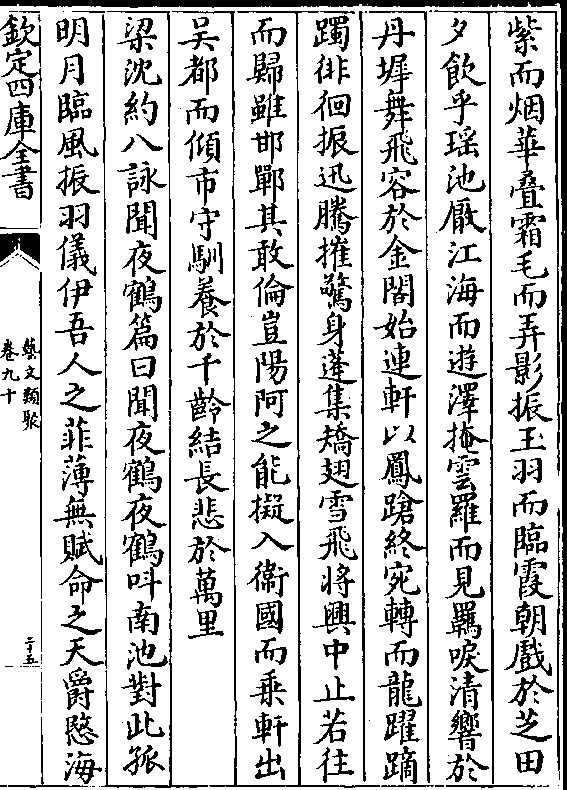 紫而烟華叠霜毛而弄影振玉羽而臨霞朝戲於芝田
夕飲乎瑶池厭江海而遊澤掩雲羅而見羈唳清響於
丹墀舞飛容於金閣始連軒以鳳蹌終宛轉而龍躍蹢
躅徘徊振迅騰摧驚身蓬集矯翅雪飛將興中止若往
而歸雖邯鄲其敢倫豈陽阿之能擬入衞國而乘軒出
吴都而傾市守馴養於千齡結長悲於萬里
梁沈約八詠聞夜鶴篇曰聞夜鶴夜鶴呌南池對此孤
明月臨風振羽儀伊吾人之菲薄無賦命之天爵愍海
欽定四庫全書
藝文類聚
卷九十
二十五